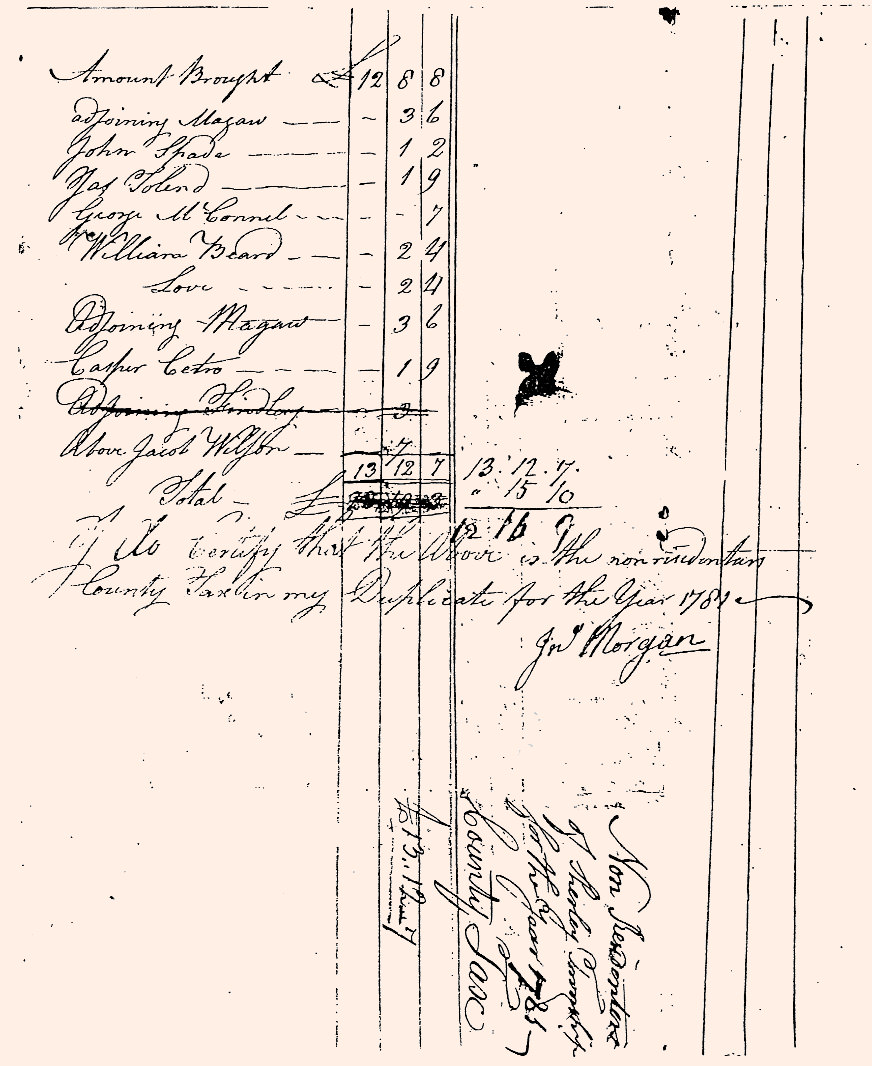 Amount Brought £ 12 8 8
adjoining Magaw - - 3 6
John Spade - - 1 2
Jas Tolend - - 1 9
George McConnel - - - 7
William Beard - - 2 4
Love - - 2 4
Adjoining Magaw - 3 6
Casper Cetro - - 1 9
Adjoining Findley - 3
Above Jacob Wilson - 7
13 12 7 13. 12. 7.
Total - £ " 15 10
12 16 9
I do Certify that the above is the non residenters
County Tax in my Duplicate for the Year 178
Jno Morgan
Non Residenters
of Sherley Township
for the Year 178
County Tax
£ 13. 12 7